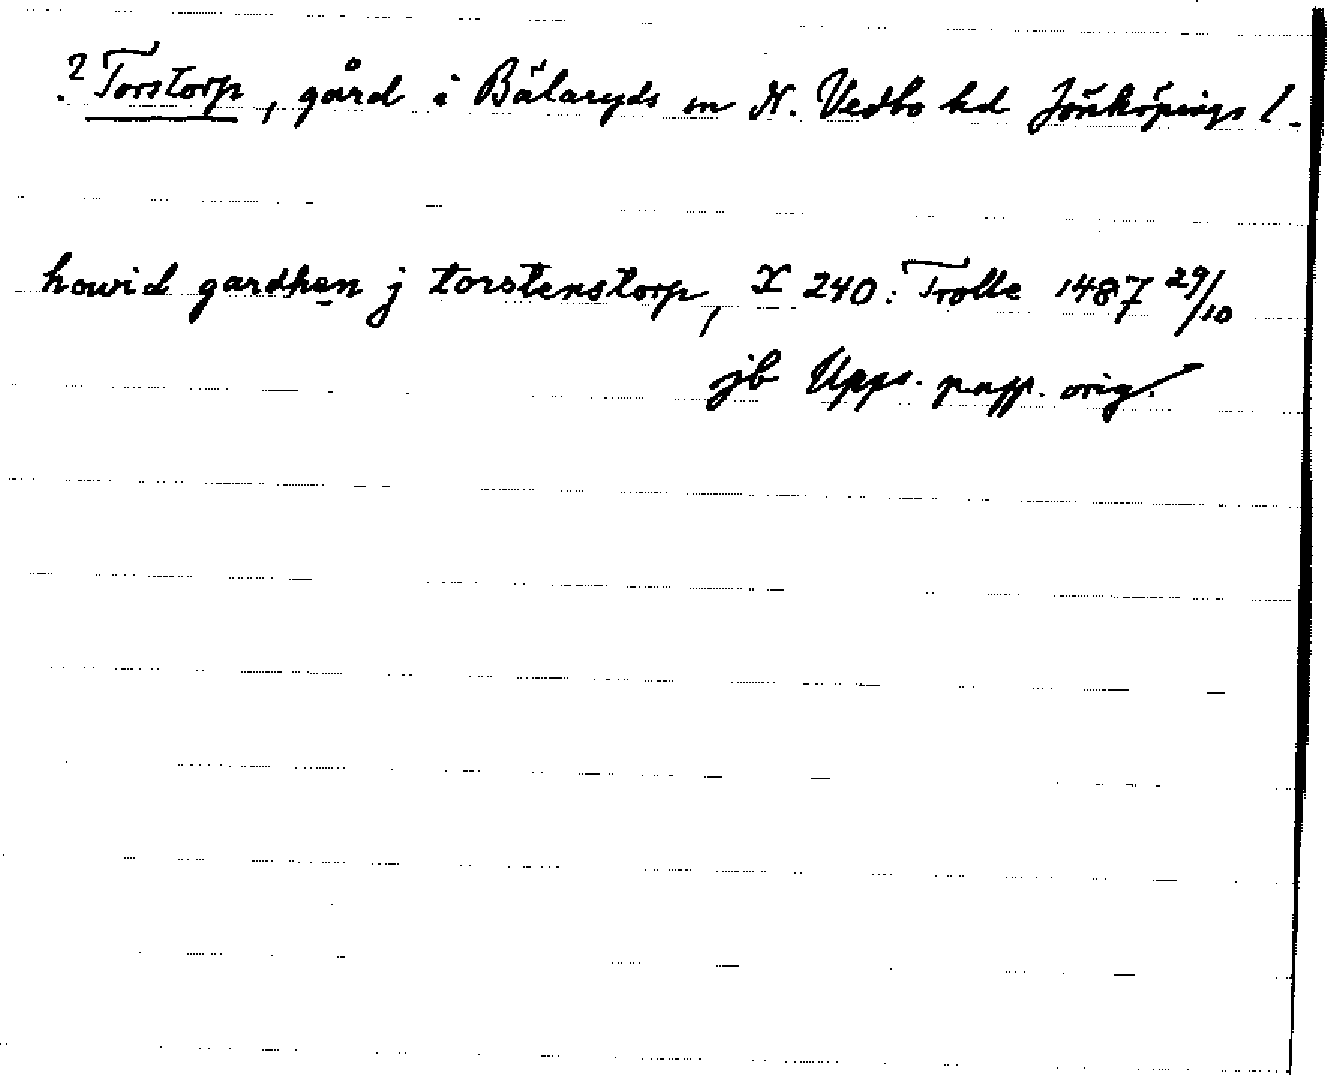 ? Torstorp, gård i Bälaryds sn N. Vedbo hd Jönköpings l.
howid gardhen j torstenstorp, X 240: Trolle 1487 29/10
jb Upps. papp. orig.